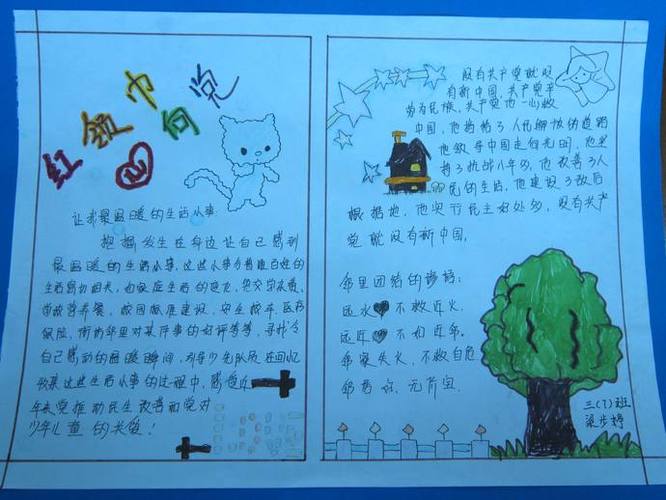 红领巾心向党
让我最温暖的生活小事:
把握发生在身边让自己感到
最温暖的生活小事,这些小事与普通百姓的
生活密切相关,如家庭生活的变化,
营养餐,校园标准建设,安全校车,医药
保险,街坊邻里对某件事的好评等等,寻找令
自己感动的温暖瞬间,引导少先队员在回忆
收集这些生活小事的过程中,感受近
年来党推动民生改善和党对
少年儿童的关爱!
没有共产党就没
有新中国,共产党辛
劳为民族,共产党他一心救
中国,他指给了人民解放的道路
他领导中国走向光明,他坚
持了抗战八年多,他改善了人
民的生活,他建设了敌后
根据地,他实行民主好处多,没有共产
党就没有新中国。
邻里团结的谚语:
远水 不救近火。
远近 不如近邻。
邻家失火,不救自危
邻居 好,无价宝。
三(7)班